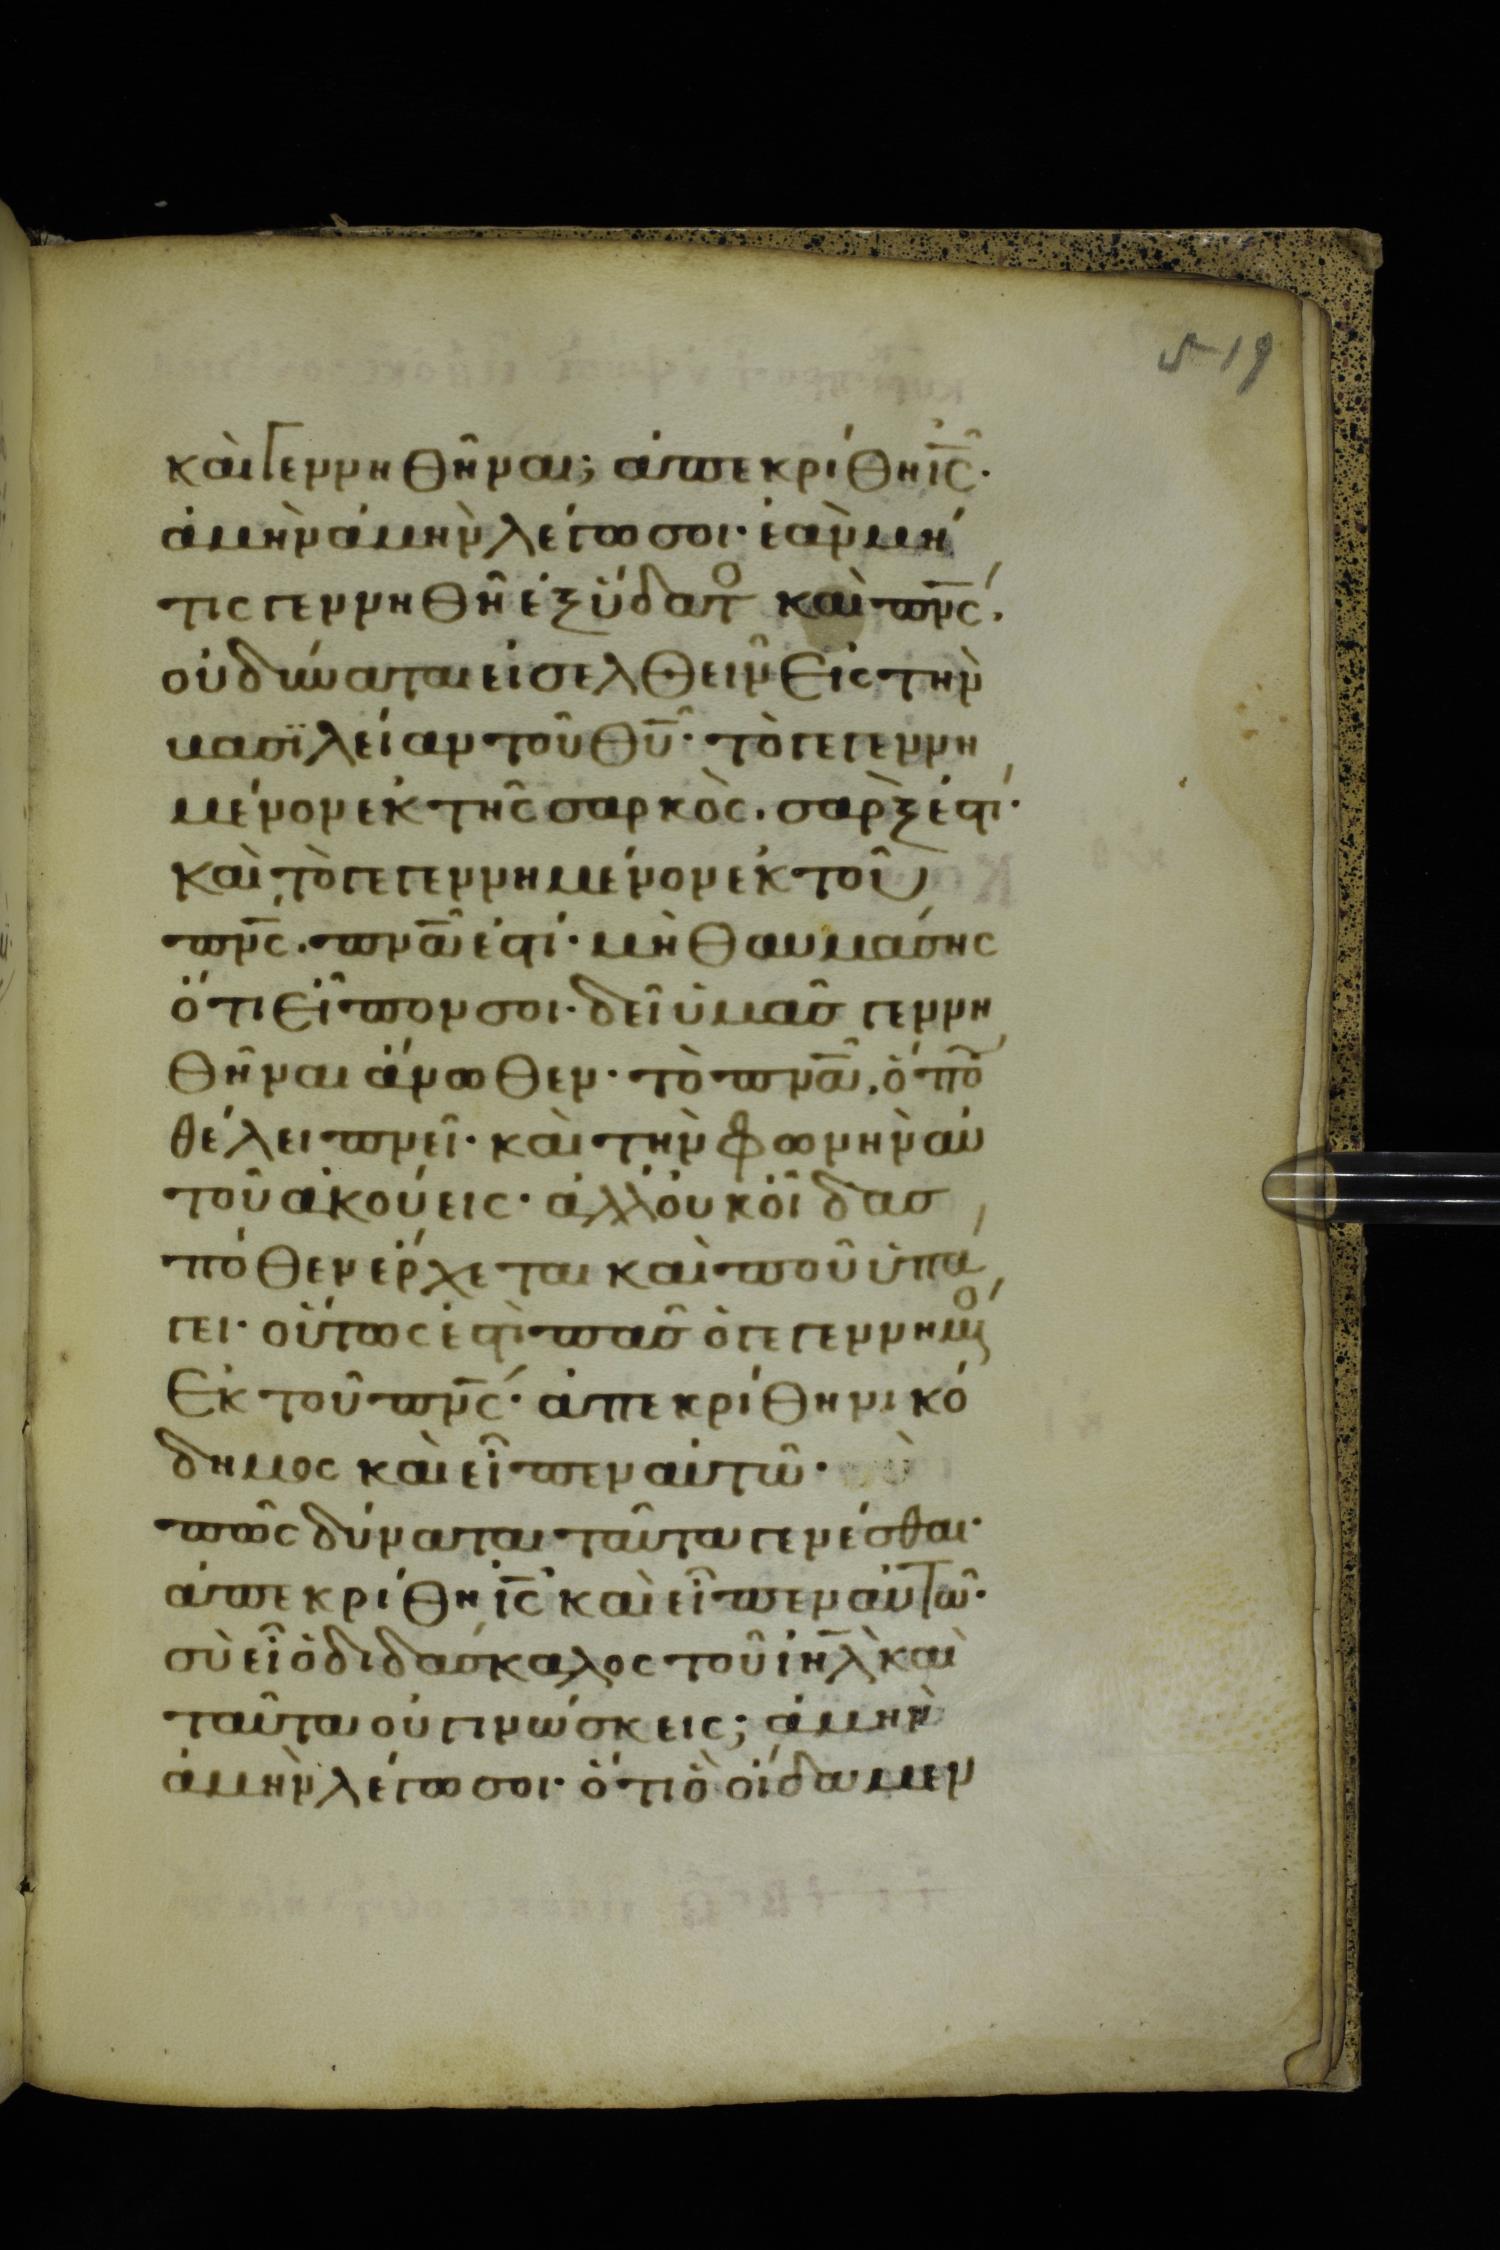 519
καὶ γεννηθῆναι; ἀπεκρίθη ἰ̅ς̅·
ἀμὴν ἀμὴν λέγω σοι· ἐὰν μή
τις γεννηθῆ ἐξ ὕδατο καὶ π̅ν̅ς̅.
οὐ δύναται εἰσελθεῖν εἰς τὴν
βασϊλείαν τοῦ θ̅υ̅· τὸ γεγεννη
μένον ἐκ τῆς σαρκὸς. σὰρξ ἐστί·
καὶ τὸ γεγεννημένον ἐκ τοῦ
π̅ν̅ς̅. π̅ν̅α̅ ἐστί· μὴ θαυμάσης
ὅτι εἶπον σοι· δεῖ ὑμᾶς γεννη
θῆναι ἄνωθεν· τὸ π̅ν̅α̅. ὅπο
θέλει πνεῖ· καὶ τὴν φωνὴν αὐ
τοῦ ἀκούεις· ἀλλ' οὐκ οἶδας
πόθεν ἔρχεται καὶ ποῦ ὑπά
γει· οὕτως ἐστὶ πᾶς ὁ γεγεννημ
ἐκ τοῦ π̅ν̅ς̅· ἀπεκρίθη νικό
δημος καὶ εἶπεν αὐτῶ·
πῶς δύναται ταῦτα γενέσθαι·
ἀπεκρίθη ἰ̅ς̅ καὶ εἶπεν αὐτῶ·
σὺ εἶ ὁ διδάσκαλος τοῦ ἰ̅η̅λ̅ καὶ
ταῦτα οὐ γινώσκεις; ἀμὴν
ἀμὴν λέγω σοι· ὅτι ὃ οἴδαμεν